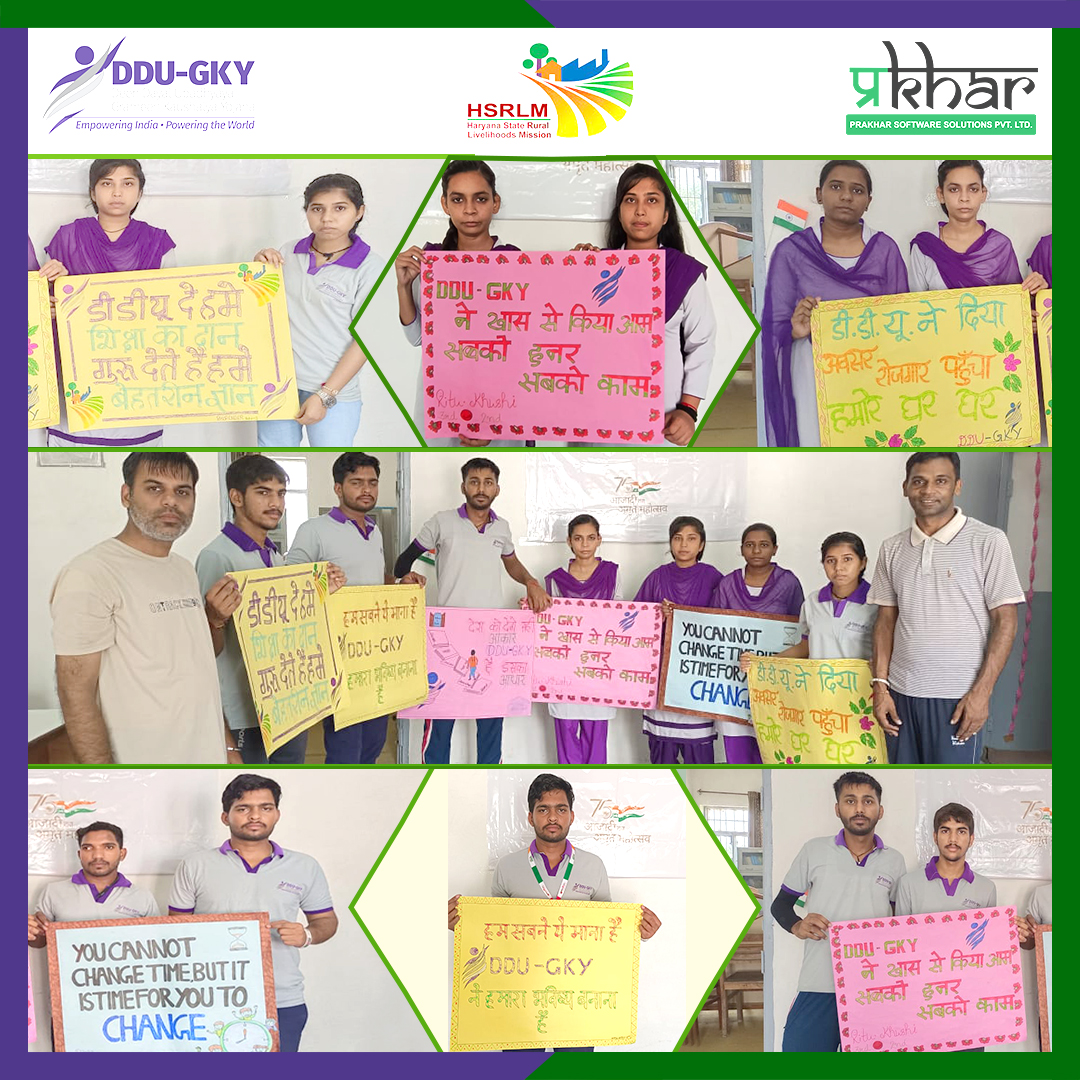 DDU-GKY
Empowering India • Powering the World
HSRLM
Haryana State Rural
Livelihoods Mission
प्रkhar
PRAKHAR SOFTWARE SOLUTIONS PVT. LTD.
डी डी यू दे हमे
शिक्षा का दान
गुरू देते हैं हमे
बेहतरीन ज्ञान
DDU-GKY
ने खास से किया आम
सबको हुनर
सबको काम
Ritu Khushi
डी.डी.यू ने दिया
अवसर रोजगार पहुँचा
हमारे घर घर
DDU-GKY
आज़ादी का
अमृत महोत्सव
डी डी यू दे हमे
शिक्षा का दान
गुरू देते हैं हमे
बेहतरीन ज्ञान
हम सबने ये माना है
DDU-GKY
हमारा भविष्य बनाना
है
आकार
DDU-GKY
है इसका
आधार
DU-GKY
ने खास से किया आम
सबको हुनर
सबको काम
YOU CANNOT
CHANGE TIME BUT
IS TIME FOR
CHANG
डी.डी.यू ने दिया
अवसर रोजगार पहुँचा
हमारे घर घर
आज़ादी का
अमृत महोत्सव
YOU CANNOT
CHANGE TIME, BUT IT
IS TIME FOR YOU TO
CHANGE
हम सबने ये माना है
DDU-GKY
ने हमारा भविष्य बनाना
है
आज़ादी का
अमृत महोत्सव
DDU-GKY
ने खास से किया आम
सबको हुनर
सबको काम
Ritu Khushi